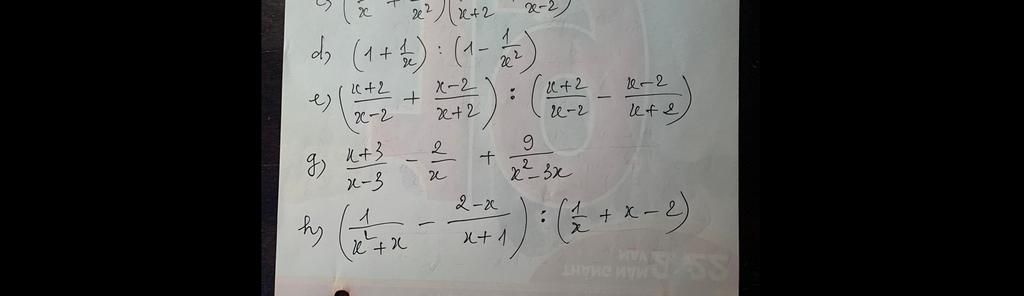 d) (1 + 1/x) : (1 - 1/x²)
e) ((x+2)/(x-2) + (x-2)/(x+2)) : ((x+2)/(x-2) - (x-2)/(x+2))
g) (x+3)/(x-3) - 2/x + 9/(x²-3x)
h) (1/(x²+x) - (2-x)/(x+1)) : (1/x + x - 2)